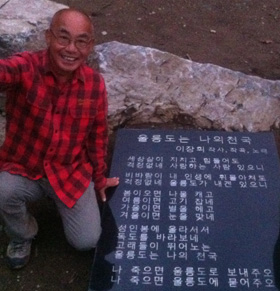 울릉도는 나의천국
이장희 작사, 작곡, 노래
세상살이 지치고 힘들어도
걱정없네 사랑하는 사람 있으니
비바람이 내 인생에 휘몰아쳐도
걱정없네 울릉도가 내겐 있으니
봄이오면 나물 캐고
여름이면 고기 잡네
가을이면 별을 헤고
겨울이면 눈을 맞네
성인봉에 올라서서
독도를 바라보네
고래들이 뛰어노는
울릉도는 나의 천국
나 죽으면 울릉도로 보내주오
나 죽으면 울릉도에 묻어주오